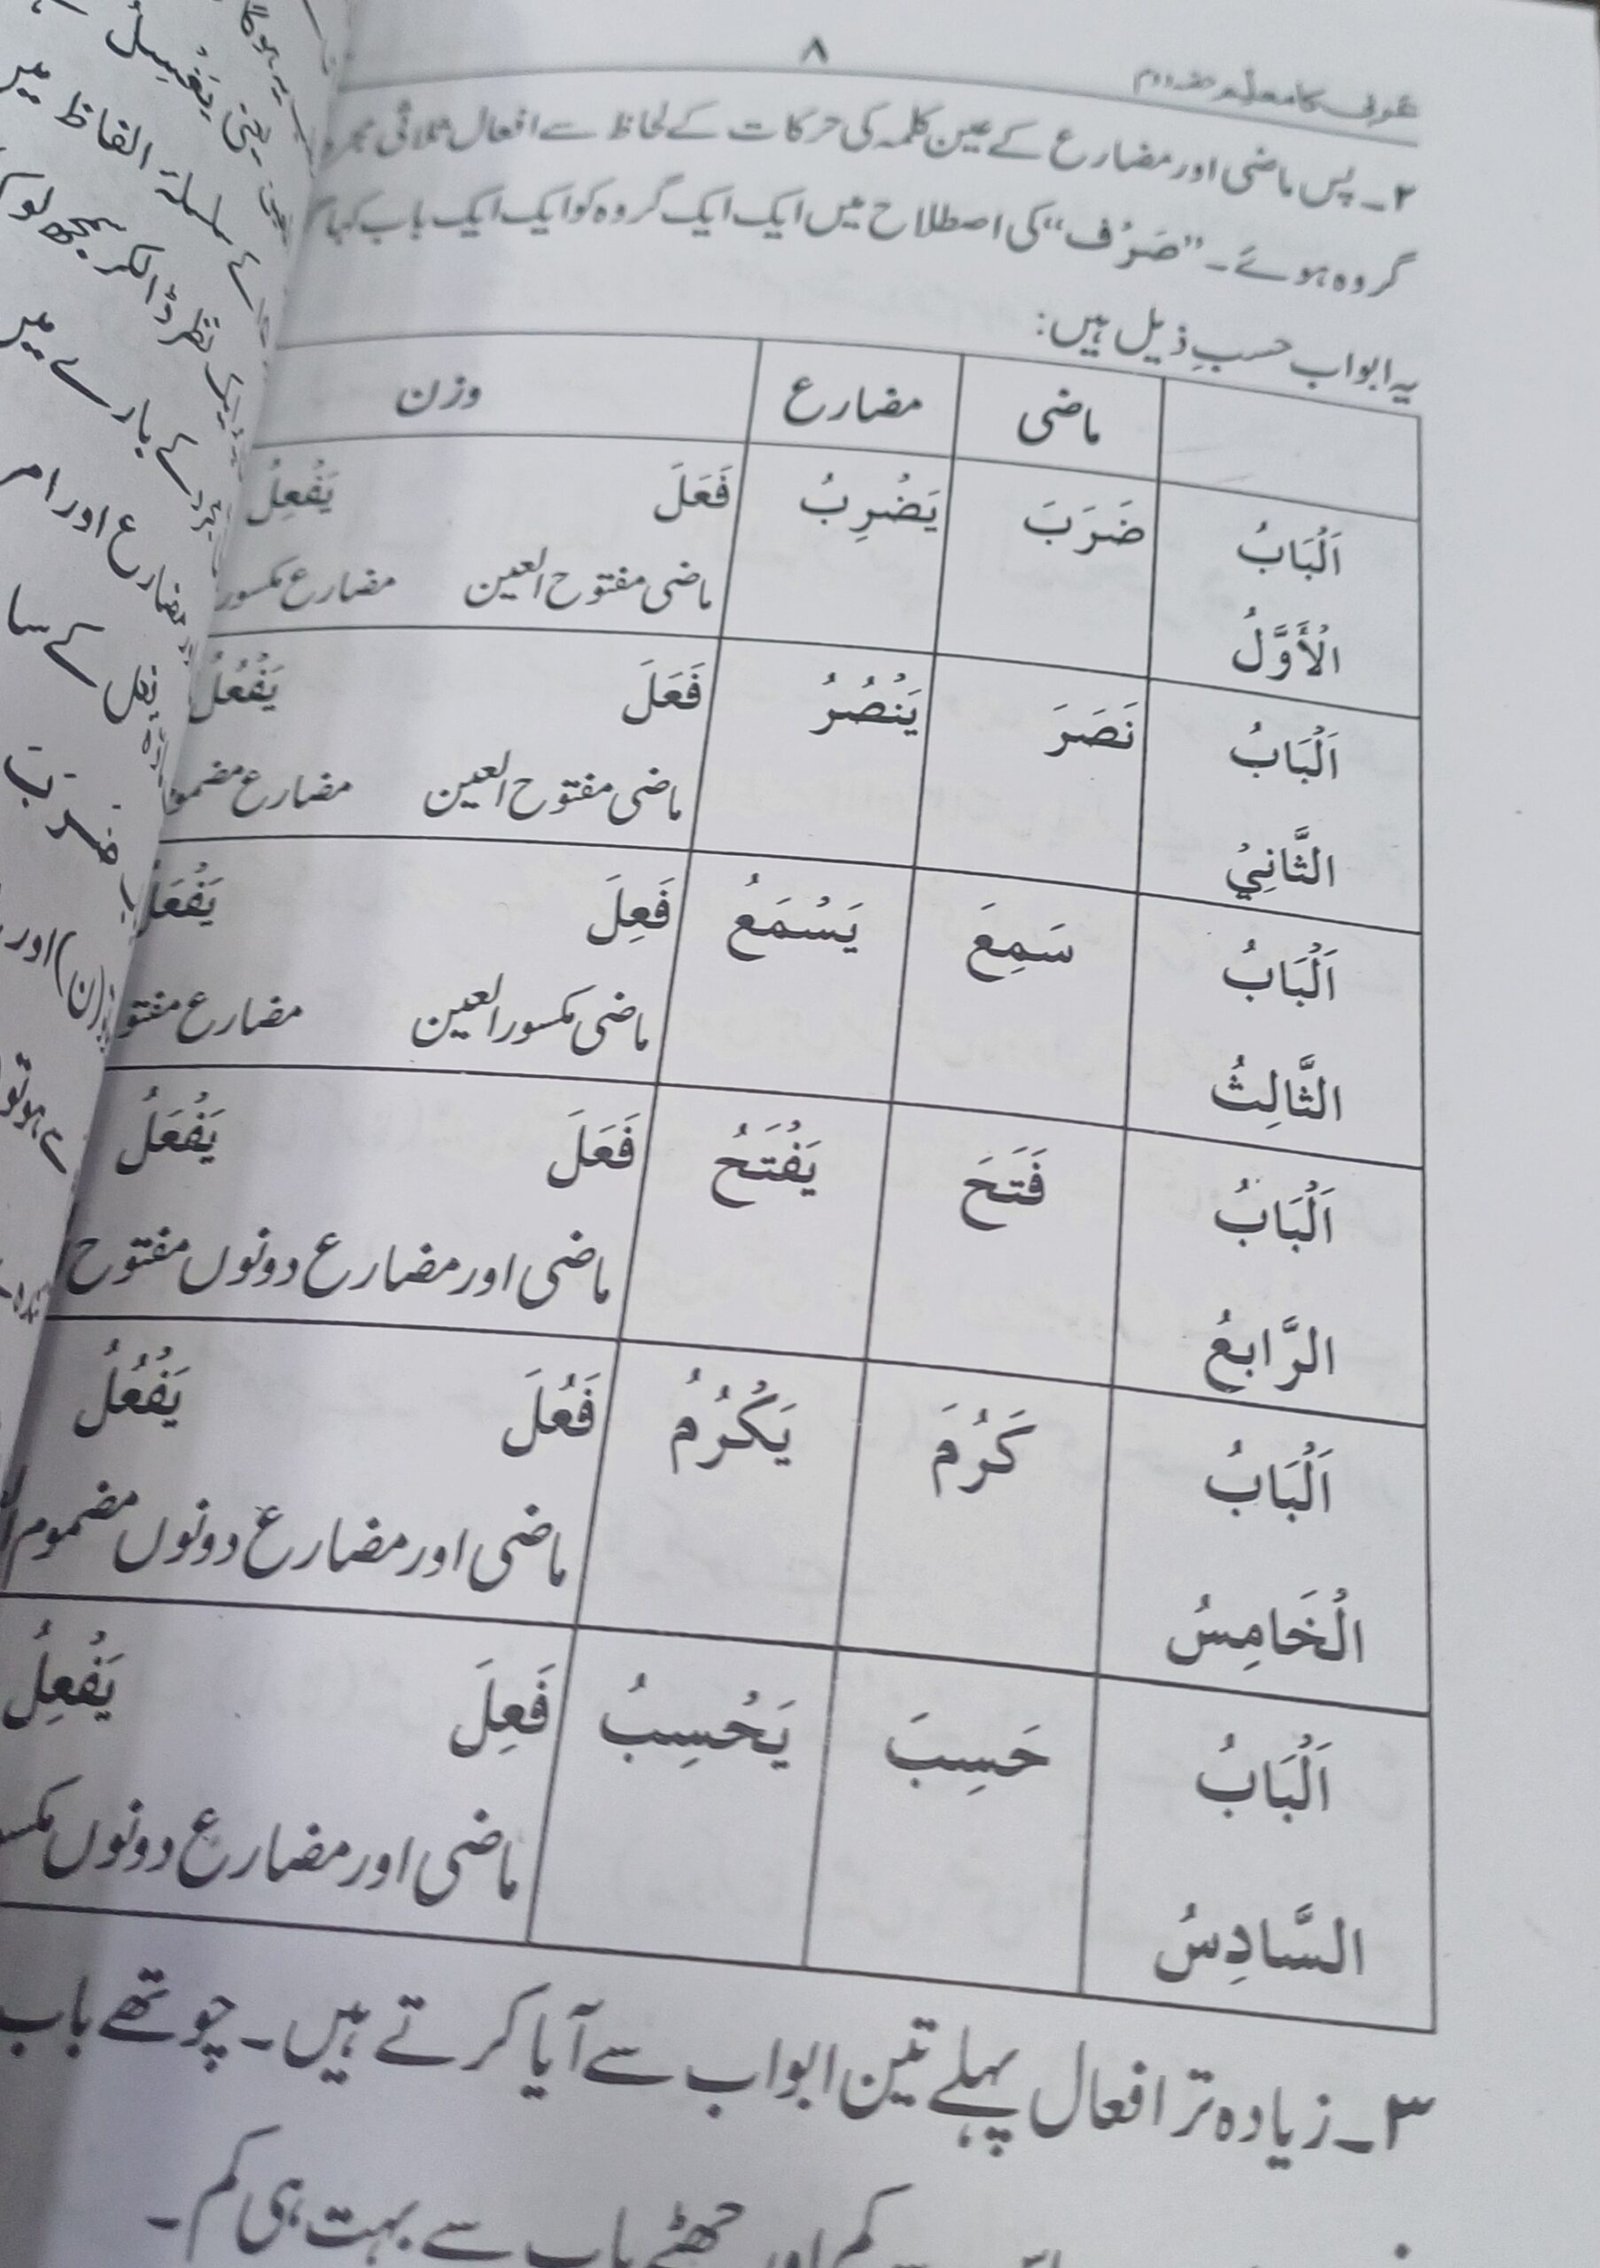 ۸
عربی کا معلّم حصہ دوم
۲۔ پس ماضی اور مضارع کے عین کلمہ کی حرکات کے لحاظ سے افعال ثلاثی مجرد
گروہ ہوئے۔ ”صَرْف“ کی اصطلاح میں ایک ایک گروہ کو ایک ایک باب کہا
یہ ابواب حسبِ ذیل ہیں:
ماضی مضارع وزن
اَلْبَابُ ضَرَبَ يَضْرِبُ فَعَلَ يَفْعِلُ
الْأَوَّلُ ماضی مفتوح العین مضارع مکسور
اَلْبَابُ نَصَرَ يَنْصُرُ فَعَلَ يَفْعُلُ
الثَّانِيْ ماضی مفتوح العین مضارع مضمو
اَلْبَابُ سَمِعَ يَسْمَعُ فَعِلَ يَفْعَلُ
الثَّالِثُ ماضی مکسور العین مضارع مفتو
اَلْبَابُ فَتَحَ يَفْتَحُ فَعَلَ يَفْعَلُ
الرَّابِعُ ماضی اور مضارع دونوں مفتوح
اَلْبَابُ كَرُمَ يَكْرُمُ فَعُلَ يَفْعُلُ
الْخَامِسُ ماضی اور مضارع دونوں مضموم
اَلْبَابُ حَسِبَ يَحْسِبُ فَعِلَ يَفْعِلُ
السَّادِسُ ماضی اور مضارع دونوں مکسو
۳۔ زیادہ تر افعال پہلے تین ابواب سے آیا کرتے ہیں۔ چوتھے باب
کم اور چھٹے باب سے بہت ہی کم۔
یہ ہوگا
یعنی يَغْسِلُ
کے سلسلۂ الفاظ میں
ایک نظر ڈالکر سمجھ لو
کے بارے میں
مضارع اور امر
کے سا
ضَرَبَ
(ن) اور
ہو تو